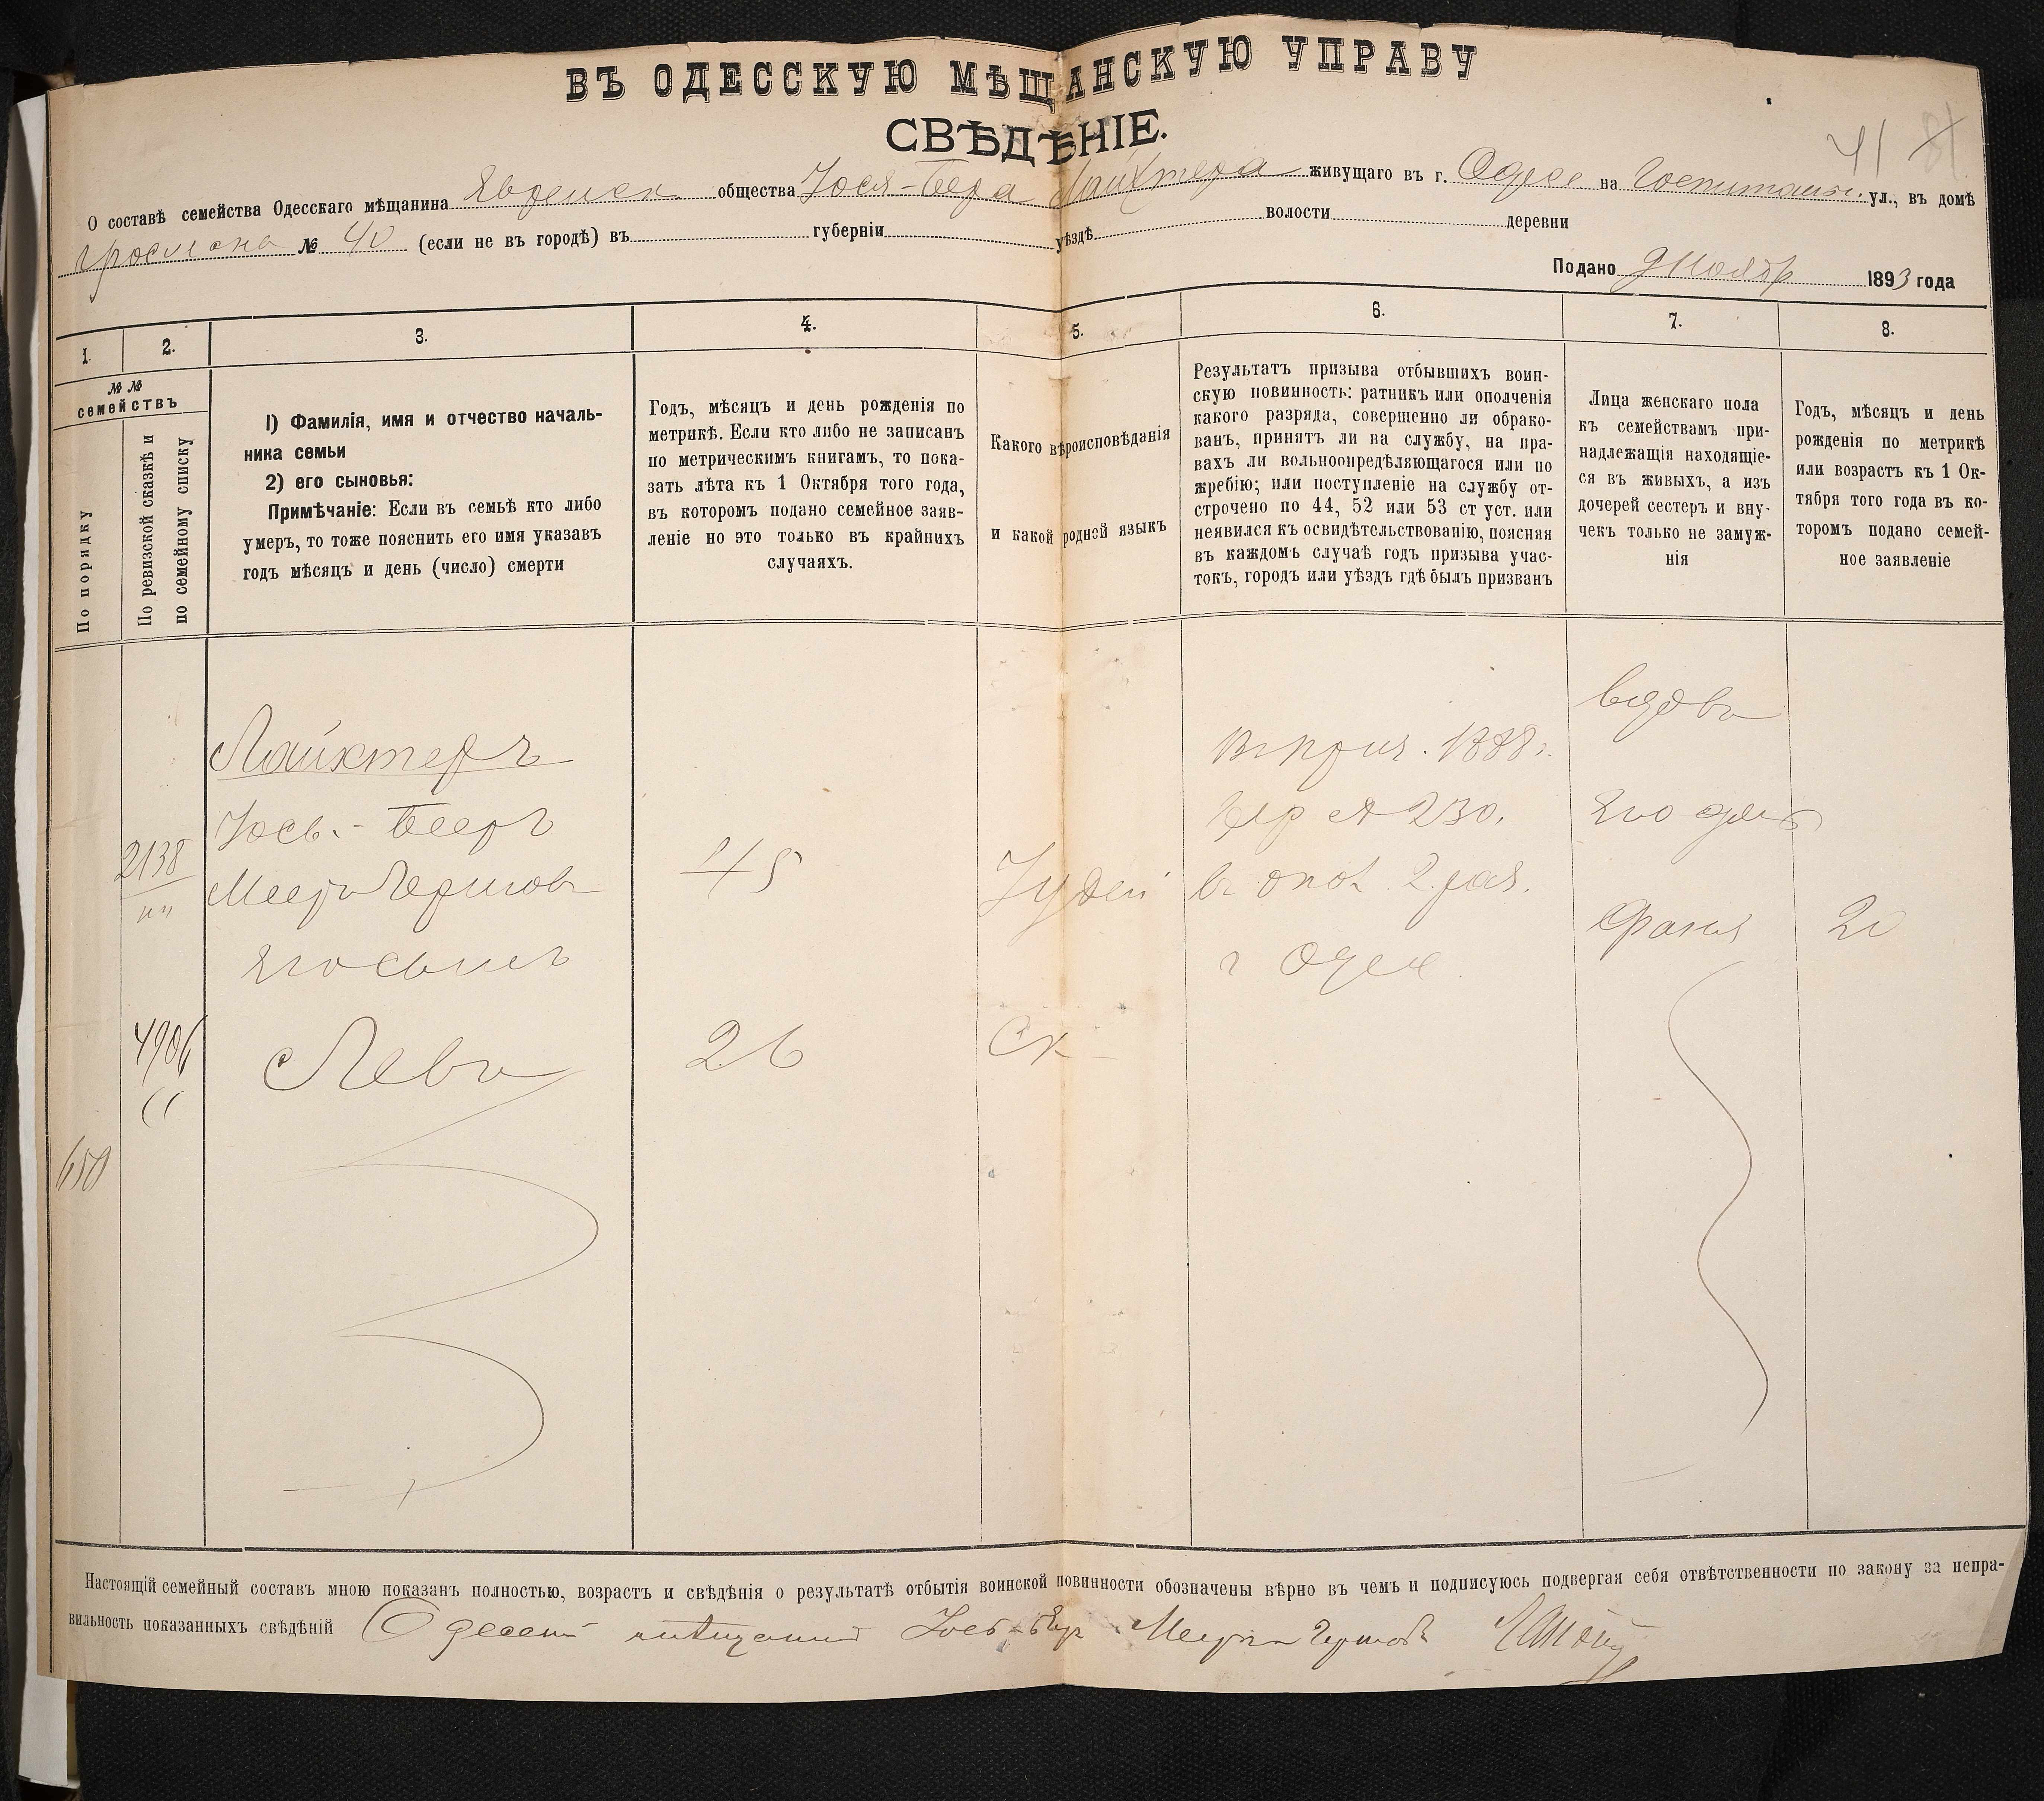 ВЪ ОДЕССКУЮ МѢЩАНСКУЮ УПРАВУ
СВѢДѢНІЕ.
41
О составѣ семейства Одесскаго мѣщанина Еврейск. общества Іося-Бера Лайхтера живущаго въ г. Одессѣ на Госпитальн. ул., въ домѣ
№ 40 (если не въ городѣ) въ губерніи уѣздѣ волости деревни
Подано 9 Ноябр 1893 года
1.
2.
3.
4.
5.
6.
7.
8.
№ № семействъ
По порядку
По ревизской сказкѣ и по семейному списку
1) Фамилія, имя и отчество началь-
ника семьи
2) его сыновья:
Примѣчаніе: Если въ семьѣ кто либо
умеръ, то тоже пояснить его имя указавъ
годъ мѣсяцъ и день (число) смерти
Годъ, мѣсяцъ и день рожденія по
метрикѣ. Если кто либо не записанъ
по метрическимъ книгамъ, то пока-
зать лѣта къ 1 Октября того года,
въ которомъ подано семейное заяв-
леніе но это только въ крайнихъ
случаяхъ.
Какого вѣроисповѣданія
и какой родной языкъ
Результатъ призыва отбывшихъ воин-
скую повинность: ратникъ или ополченія
какого разряда, совершенно ли обрако-
ванъ, принятъ ли на службу, на пра-
вахъ ли вольноопредѣляющагося или по
жребію; или поступленіе на службу от-
строчено по 44, 52 или 53 ст уст. или
неявился къ освидѣтельствованію, поясняя
въ каждомъ случаѣ годъ призыва учас-
токъ, городъ или уѣздъ гдѣ былъ призванъ
Лица женскаго пола
къ семействамъ при-
надлежащія находящіе-
ся въ живыхъ, а изъ
дочерей сестеръ и вну-
чекъ только не замуж-
нія
Годъ, мѣсяцъ и день
рожденія по метрикѣ
или возрастъ къ 1 Ок-
тября того года въ ко-
торомъ подано семей-
ное заявленіе
Лайхтеръ
Іось-Бееръ
2138
Мееро Гершовъ
45
Іудей
Его сынъ
4906
Левъ
26
650
1888 г.
№ 230.
въ опол. 2 раз.
г Одес
вдова
Его дочь
Фаня
20
Настоящій семейный составъ мною показанъ полностью, возрастъ и свѣдѣнія о результатѣ отбытія воинской повинности обозначены вѣрно въ чемъ и подписуюсь подвергая себя отвѣтственности по закону за непра-
вильность показанныхъ свѣдѣній Одесскій мѣщанинъ Іось-Беръ Мееро Гершовъ